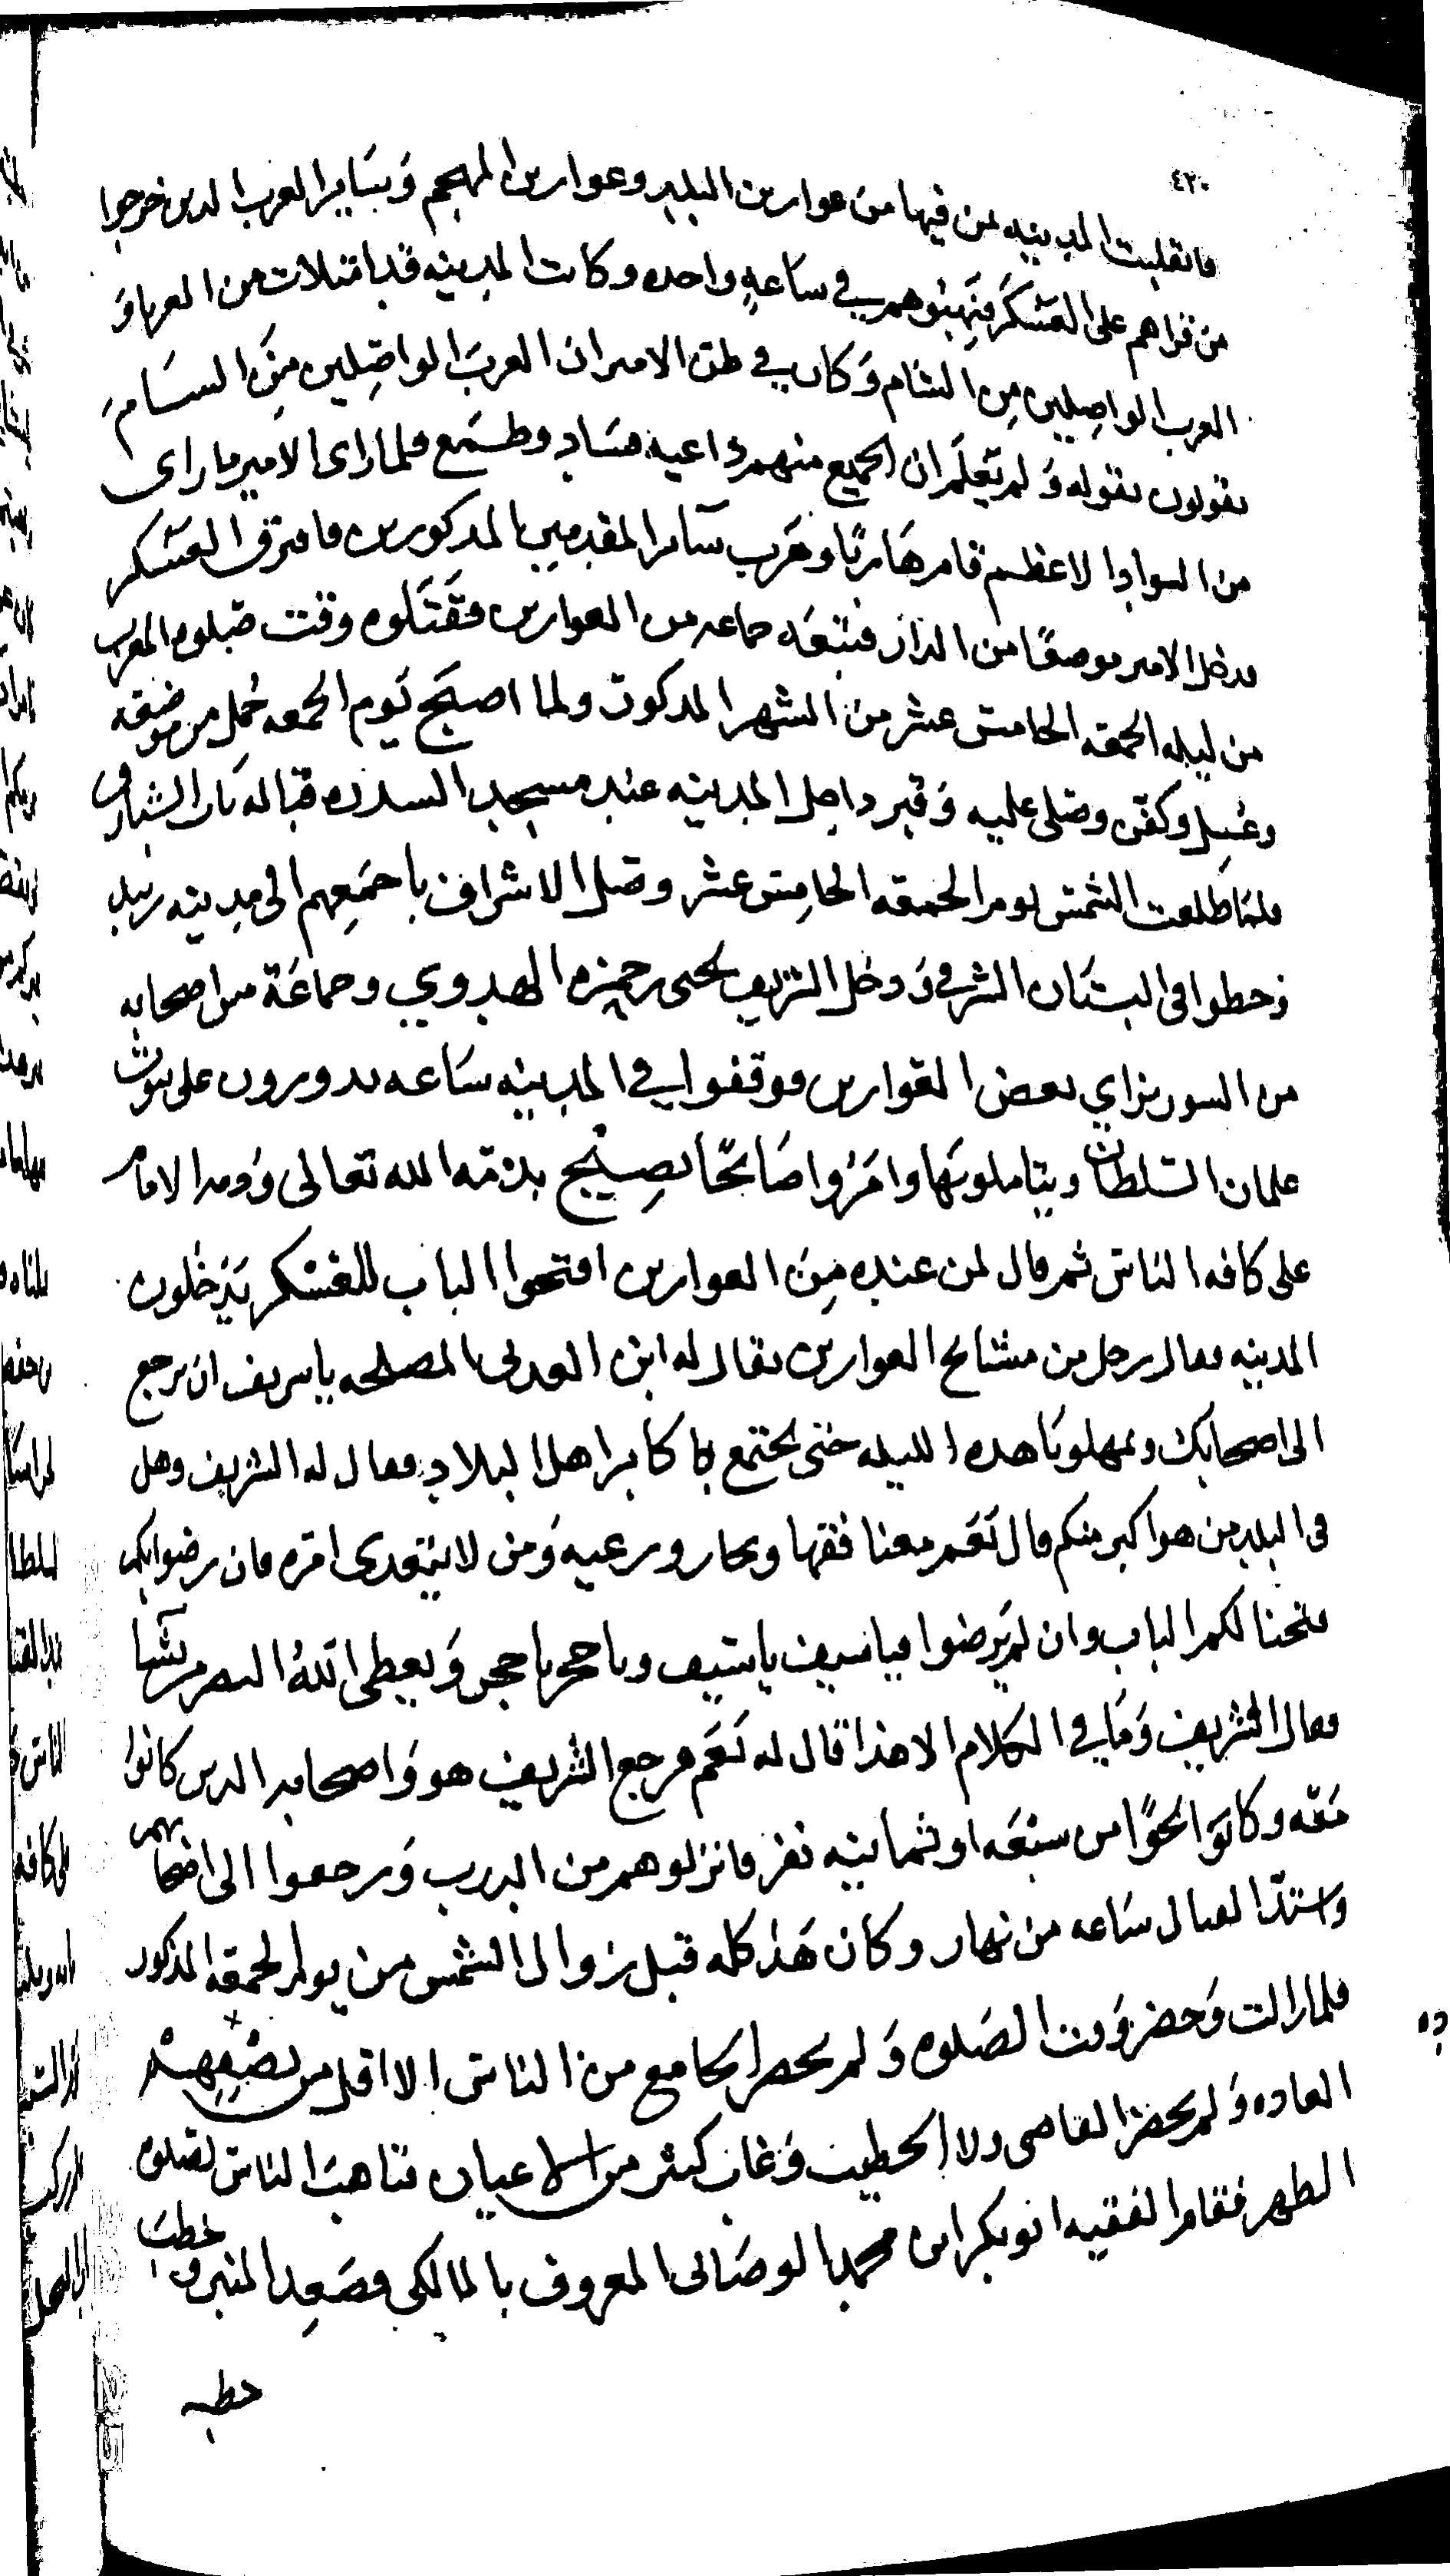 ٤٢٠
فانقلبت المدينه بمن فيها من عوارين البلد وعوارين المهجم وبساير العرب الدين خرجوا
من قراهم على العسكر فنهبوهم في ساعةٍ واحده وكانت المدينه قد امتلات من العربا و
العرب الواصلين من الشام وكان في ظن الامير ان العرب الواصلين من الشام
يقولون بقوله ولم يعلم ان الجميع منهم داعية فساد وطمع فلما راى الامير ما راى
من السواد الاعظم قام هاربًا وهرب سآير المقدمين المدكورين فافترق العسكر
ودخل الامير موضعًا من الدار فتبعه جماعه من العوارين فقتلوه وقت صلوه المغرب
من ليله الجمعه الخامس عشر من الشهر المدكور ولما اصبح يوم الجمعه حُمل من موضعه
وغسل وكفن وصلي عليه وقبر داخل المدينه عند مسجد السدره قباله باب الشبارق
فلما طلعت الشمس يوم الجمعه الخامس عشر وصل الاشراف باجمعهم الى مدينه زبيد
وحطوا في البستان الشرقي ودخل الشريف يحيى بن حمزه الهدوي وجماعة من اصحابه
من السور براي بعض العوارين فوقفوا في المدينه ساعه يدورون على بيوت
غلمان السلطان ويتاملونها وامروا صائحًا يصيح بذمه الله تعالى وذمه الامام
على كافه الناس ثم قال لمن عنده من العوارين افتحوا الباب للعسكر يدخلون
المدينه فقال رجل من مشايخ العوارين يقال له ابن العدلى المصلحه يا شريف ان ترجع
الى اصحابك وتمهلونا هده الليله حتى يجتمع اكابر اهل البلاد فقال له الشريف وهل
في البلد من هو اكبر منكم قال نعم معنا فقها وتجار ورعيه ومن لا يتعدى امره فان رضوا بكم
فتحنا لكم الباب وان لم يرضوا فياسيف ياسيف وياحجر ياحجر ويعطى الله النصر من يشا
فقال الشريف وما في الكلام الا هذا قال له نعم فرجع الشريف هو واصحابه الدين كانوا
معه وكانوا نحوًا من سبعه او ثمانيه نفر فانزلوهم من الدرب ورجعوا الى اصحابهم
واشتد القتال ساعه من نهار وكان هذا كله قبل زوال الشمس من يوم الجمعه المذكور
فلما زالت وحضر وقت الصلوه ولم يحضر الجامع من الناس الا اقل من نصفهم
العاده ولم يحضر القاضي ولا الخطيب وغاب كثير من الاعيان فتاهب الناس لصلوه
الظهر فقام الفقيه ابو بكر ابن محمد الوصابى المعروف بالمالكى فصعد المنبر وخطب
خطبه